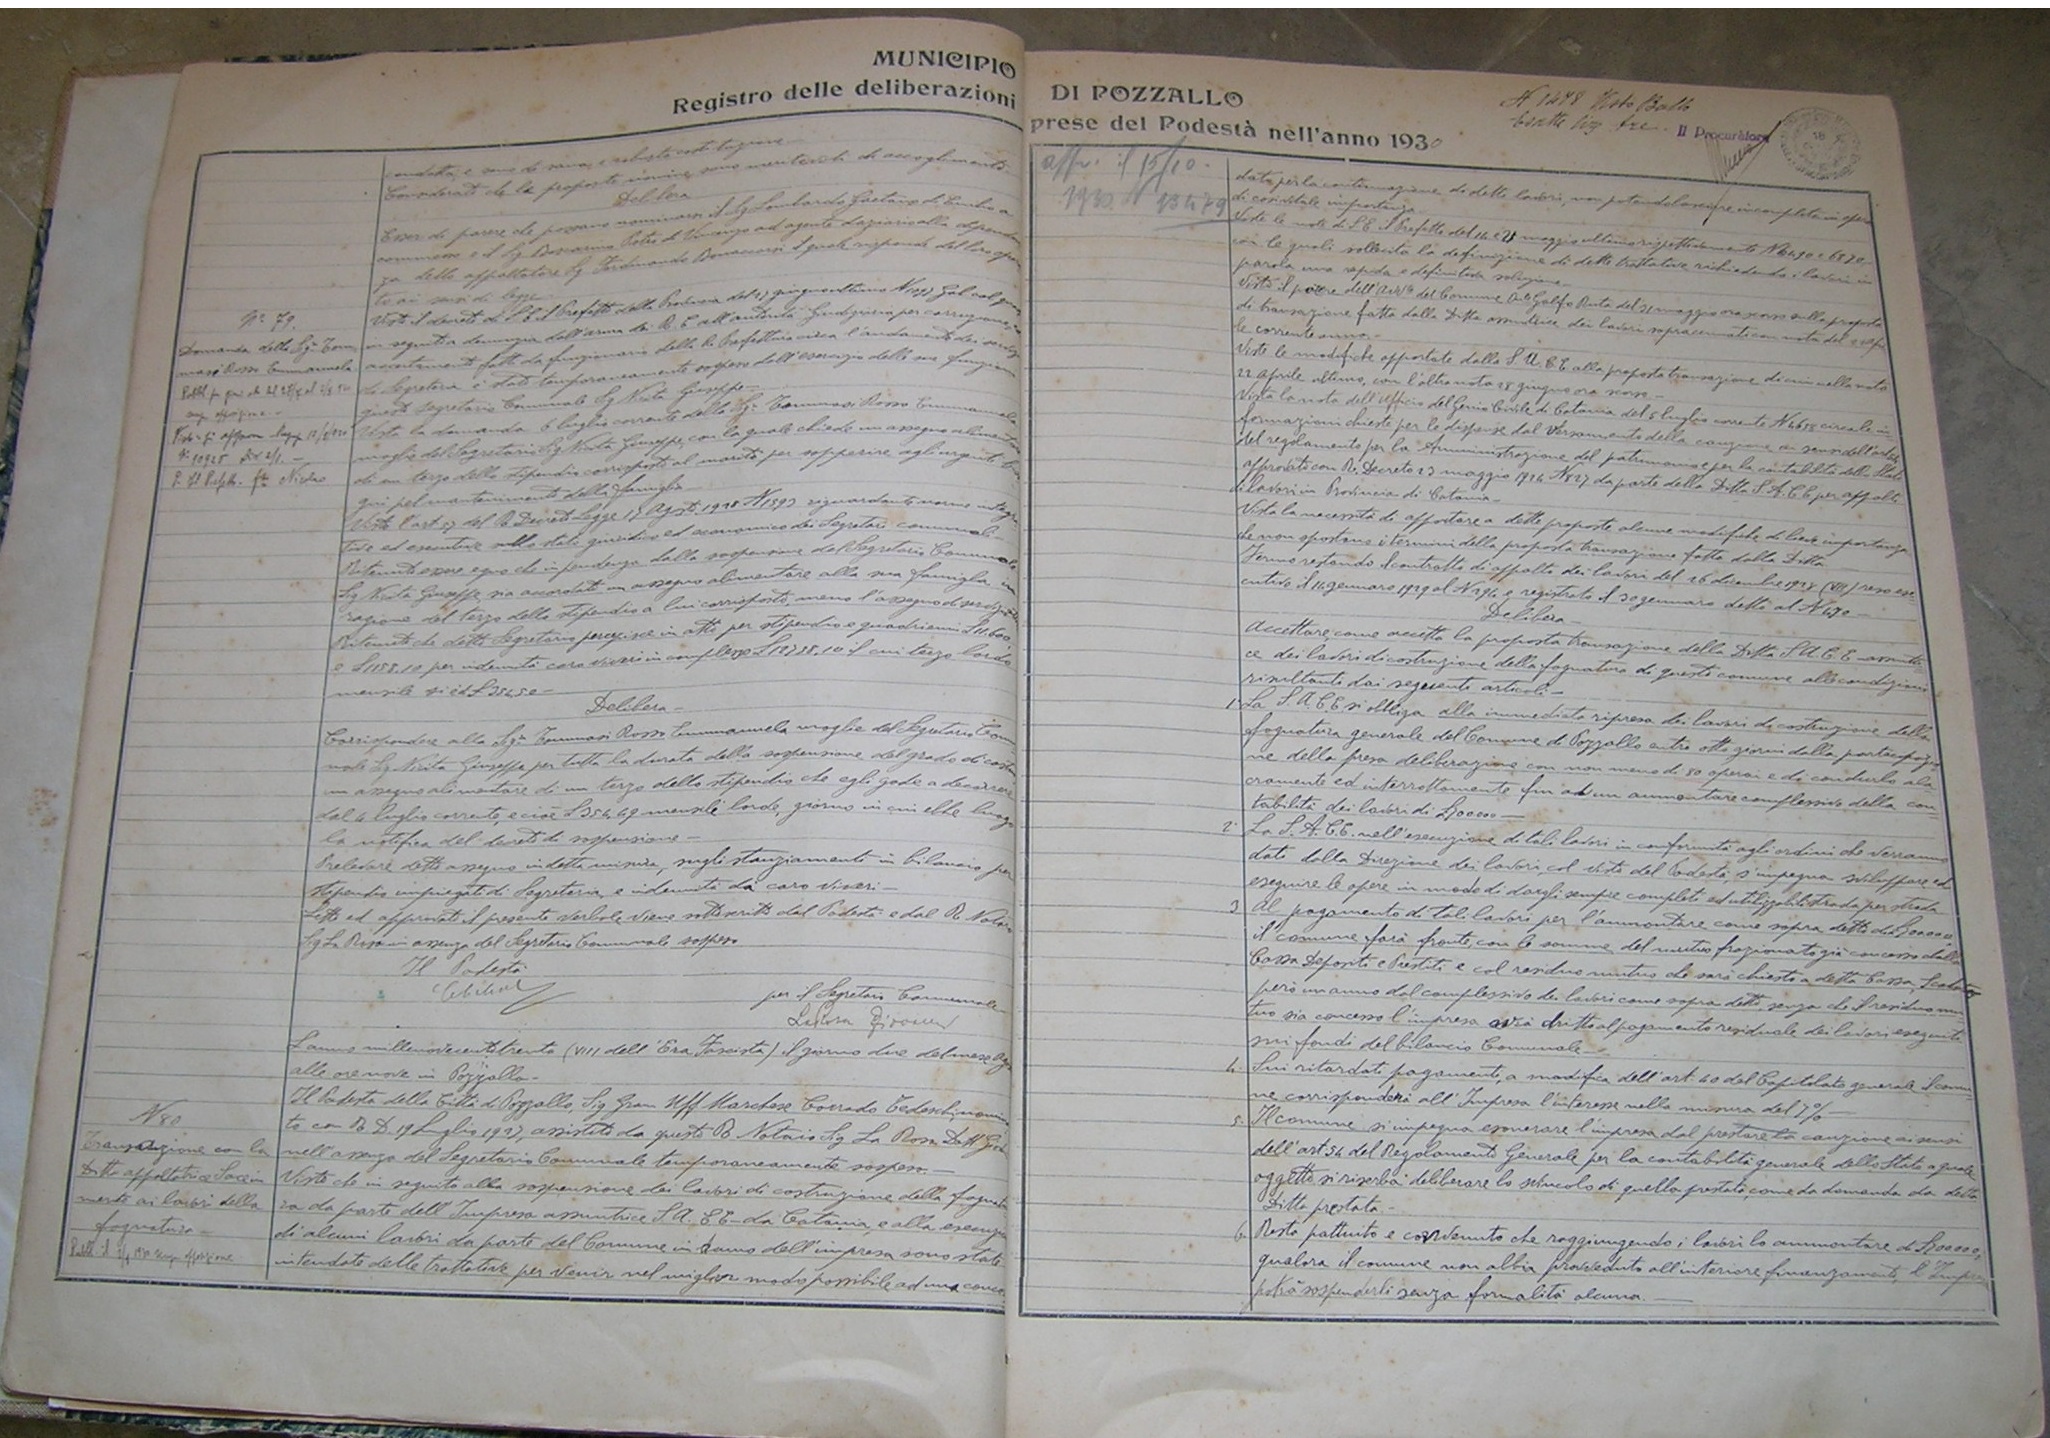 MUNICIPIO
Registro delle deliberazioni
condotta, e sono di sana e robusta costituzione
Considerato che le proposte nomine sono meritevoli di accoglimento
Delibera
Esser di parere che possano nominarsi il Sig Lombardo Gaetano di Emilio a
commesso e il Sig Pietro di Vincenzo ad agente daziario alla dipenden
za dello appaltatore Sig Ferdinando Bonaccorsi il quale risponde del loro opera
to ai sensi di legge
Nº 79.
Domanda della Sgª Tom
masi Rosso Emmanuela
Visto il decreto di S.E. il Prefetto della Provincia del 27 giugno ultimo N 1297 Gab col quale
in seguito a denunzia dell'arma dei R.C. all'autorità Giudiziaria per
accertamenti fatti da funzionario della R. Prefettura circa l'andamento dei servizi
di Segreteria è stato temporaneamente sospeso dall'esercizio delle sue funzioni
questo segretario Comunale Sig Nicita Giuseppe
Vista la domanda 6 luglio corrente della Sgª Tommasi Rosso Emmanuela
moglie del Segretario Sig Nicita Giuseppe, con la quale chiede un assegno alimentare
di un terzo dello stipendio corrisposto al marito per sopperire agli urgenti biso
gni pel mantenimento della famiglia
Visto l'art 57 del R. Decreto Legge 17 Agosto 1928 N 1593 riguardante norme integra
tive ed esecutive sullo stato giuridico ed economico dei Segretari comunali
Ritenuto essere equo che in pendenza della sospensione del Segretario Comunale
Sig Nicita Giuseppe sia accordato un assegno alimentare alla sua famiglia in
ragione del terzo dello stipendio a lui corrisposto, meno l'assegno di servizio
Ritenuto che detto Segretario percepisce in atto per stipendio e quadrienni £ 11.600
e £ 1158.10 per indennità caro viveri in complesso £ 12758.10 il cui terzo lordo
mensile si è di £ 354.50
Delibera
Corrispondere alla Sgª Tommasi Rosso Emmanuela moglie del Segretario Com
nale Sig Nicita Giuseppe per tutta la durata della sospensione del grado di costui
un assegno alimentare di un terzo dello stipendio che egli gode a decorrere
dal 4 luglio corrente, e cioè £ 354.49 mensili lorde, giorno in cui ebbe luogo
la notifica del decreto di sospensione
Prelevare detto assegno in detta misura, sugli stanziamenti in bilancio per
stipendio impiegati di Segreteria e indennità di caro viveri
Letto ed approvato il presente verbale viene sottoscritto dal Podestà e dal R. Notaio
Sig La Rosa in assenza del Segretario Comunale sospeso
Il Podestà
per il Segretario Comunale
La Rosa
L'anno millenovecentotrenta (VIII dell'Era Fascista) il giorno due del mese Ago
alle ore nove in Pozzallo
N 80
Transazione con la
Ditta appaltatrice Sace in
merito ai lavori della
fognatura
Il Podestà della Città di Pozzallo, Sig Gran Uff Marchese Corrado Tedeschi nomina
to con R. D. 19 Luglio 1927, assistito da questo R. Notaio Sig La Rosa Dott Giov
nell'assenza del Segretario Comunale temporaneamente sospeso
Visto che in seguito alla sospensione dei lavori di costruzione della fognatu
ra da parte dell'Impresa assuntrice S.A.C.E. da Catania, e alla esecuzio
di alcuni lavori da parte del Comune in danno dell'impresa sono state
intendate delle trattative per venir nel miglior modo possibile ad una
DI POZZALLO
prese del Podestà nell'anno 1930
N 1278 Visto Bollo
Il Procuratore
appr. il 15/10
1930. N 13479
data per la continuazione di detti lavori, non potendo lasciare incompleta un'opera
di così vitale importanza
Viste le note di S.E. il Prefetto del 14 e 28 maggio ultimo rispettivamente N 6490 e 6820
con le quali sollecita la definizione di dette trattative richiedendo i lavori in
parola una rapida e definitiva soluzione
Visto il parere dell'Avv/to del Comune Golfo Ruta del 31 maggio ora scorso sulla proposta
di transazione fatta dalla Ditta assuntrice dei lavori sopracennati con nota del 22 Apri
le corrente anno
Viste le modifiche apportate dalla S.A.C.E alla proposta transazione di cui nella nota
22 Aprile ultimo, con l'altra nota 28 giugno ora scorso
Vista la nota dell'Ufficio del Genio Civile di Catania del 5 luglio corrente N 4658 circa le in
formazioni chieste per le dispense dal versamento della cauzione ai sensi dell'art 54
del regolamento per la Amministrazione del patrimonio e per la contabilità dello Stato
approvato con R. Decreto 23 maggio 1924 N 827 da parte della Ditta S.A.C.E per appalti
di lavori in Provincia di Catania
Vista la necessità di apportare a dette proposte alcune modifiche di lieve importanza
che non spostano i termini della proposta transazione fatta dalla Ditta
Fermo restando il contratto di appalto dei lavori del 26 dicembre 1928 (VII) reso ese
cutivo il 14 gennaro 1929 al N 294 e registrato il 30 gennaro detto al N 490
Delibera
Accettare, come accetta la proposta transazione della Ditta S.A.C.E assuntri
ce dei lavori di costruzione della fognatura di questo comune alle condizioni
risultanti dai seguenti articoli
1º La S.A.C.E si obbliga alla immediata ripresa dei lavori di costruzione della
fognatura generale del Comune di Pozzallo entro otto giorni dalla partecipazio
ne della presa deliberazione con non meno di 50 operai e di condurlo ala
cramente ed interrottamente fin ad un ammontare complessivo della con
tabilità dei lavori di
2º La S.A.C.E. nell'esecuzione di tali lavori in conformità agli ordini che verranno
dati dalla Direzione dei lavori col visto del Podestà, s'impegna sviluppare ed
eseguire le opere in modo di dargli sempre completi ed utilizzabili strada per strada
3 Al pagamento di tali lavori per l'ammontare come sopra detto di
il comune farà fronte, con le somme del mutuo frazionato già concesso dalla
Cassa Depositi e Prestiti e col residuo mutuo che sarà chiesto a detta Cassa. Scaduto
però un anno dal complessivo dei lavori come sopra detto, senza che il residuo mu
tuo sia concesso l'impresa avrà diritto al pagamento residuale dei lavori eseguiti
sui fondi del bilancio Comunale
4. Sui ritardati pagamenti, a modifica dell'art 40 del Capitolato generale il comu
ne corrisponderà all'Impresa l'interesse nella misura del 7%
5. Il comune si impegna esonerare l'impresa dal prestare la cauzione ai sensi
dell'art 54 del Regolamento Generale per la contabilità generale dello Stato a quale
oggetto si riserba deliberare lo svincolo di quella prestata come da domanda da detta
Ditta prestata
6. Resta pattuito e convenuto che raggiungendo i lavori lo ammontare di
qualora il comune non abbia provveduto all'ulteriore finanziamento, l'Impresa
potrà sospenderli senza formalità alcuna.